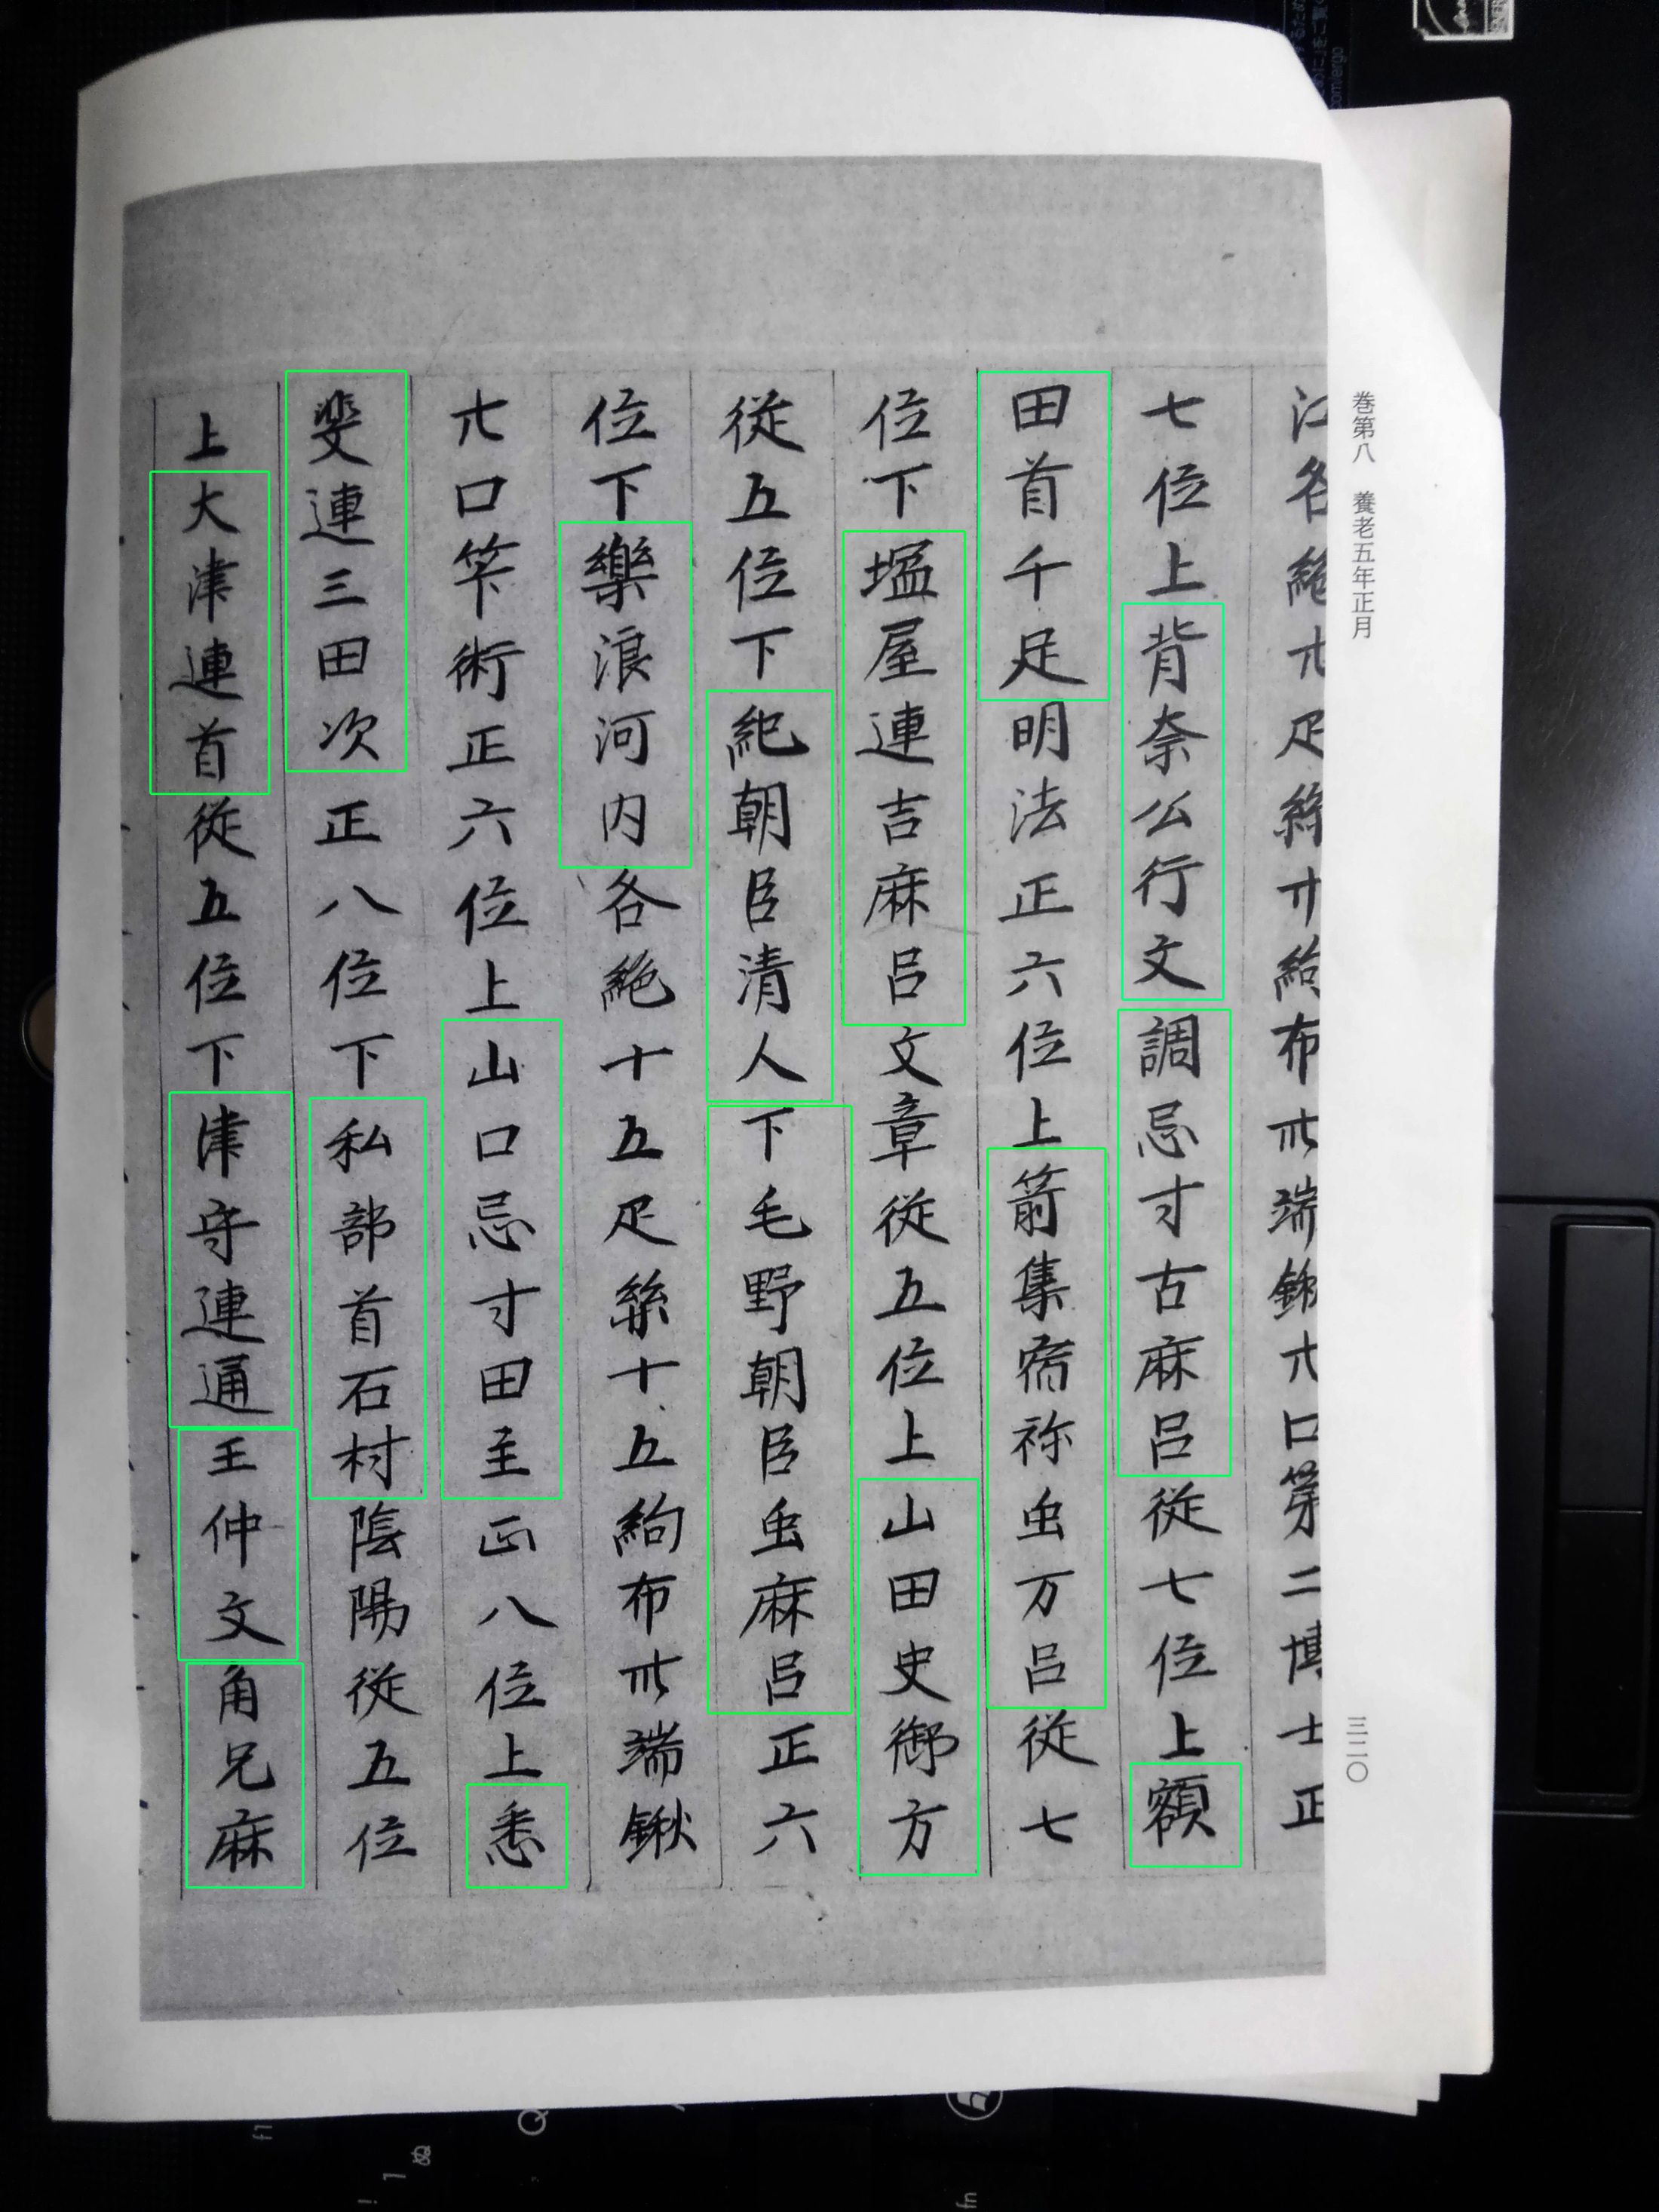 巻第八　養老五年正月
三二〇
江各絁廿疋絲廿絇布卅端鍬廿口第二博士正
七位上背奈公行文調忌寸古麻呂従七位上額
田首千足明法正六位上箭集宿祢虫万呂従七
位下塩屋連吉麻呂文章従五位上山田史御方
従五位下紀朝臣清人下毛野朝臣虫麻呂正六
位下樂浪河内各絁十五疋絲十五絇布卅端鍬
廿口筭術正六位上山口忌寸田主正八位上悉
斐連三田次正八位下私部首石村陰陽従五位
上大津連首従五位下津守連通王仲文角兄麻